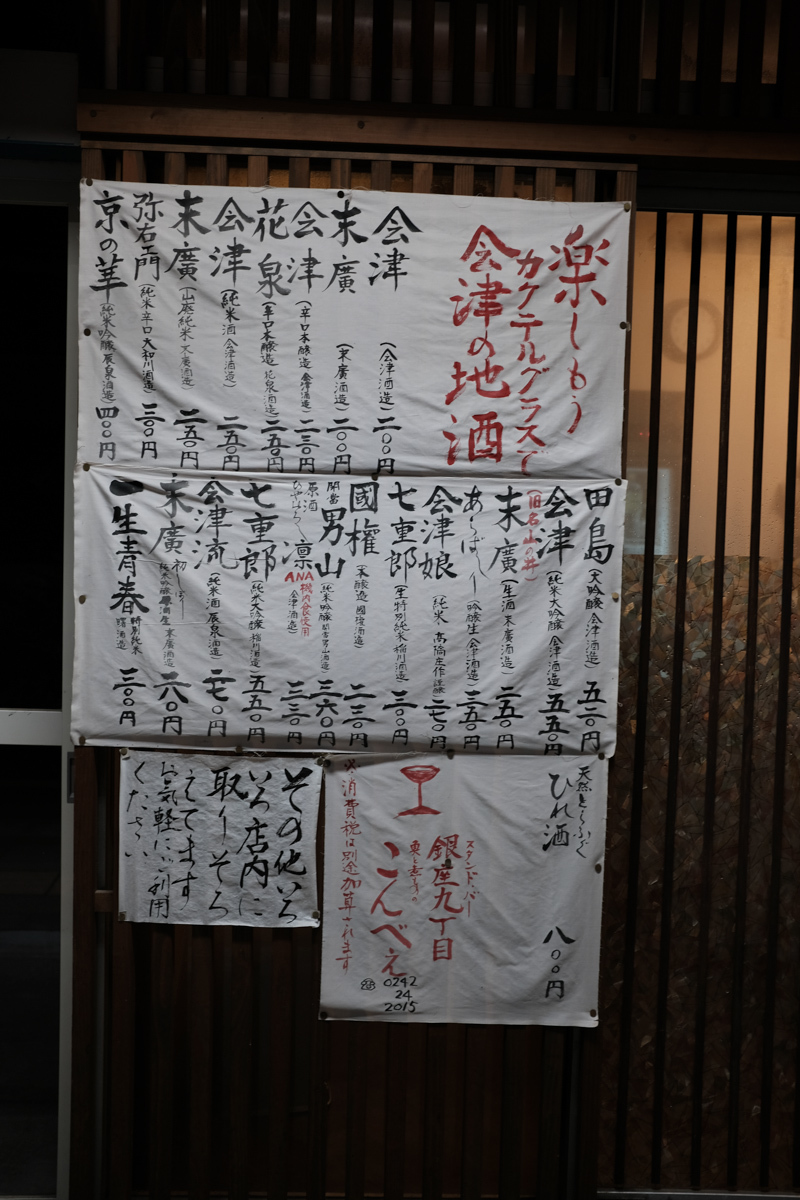 楽しもう
カクテルグラスで
会津の地酒
会津 (会津酒造) 二〇〇円
末廣 (末廣酒造) 二〇〇円
会津 (辛口本醸造 会津酒造) 二三〇円
花泉 (辛口本醸造 花泉酒造) 二五〇円
会津 (純米酒 会津酒造) 二五〇円
末廣 (山廃純米 末廣酒造) 二五〇円
弥右エ門 (純米辛口 大和川酒造) 三〇〇円
京の華 (純米吟醸 辰泉酒造) 四〇〇円
田島 (大吟醸 会津酒造) 五二〇円
(旧名・山の井)
会津 (純米大吟醸 会津酒造) 五五〇円
末廣 (生酒 末廣酒造) 二五〇円
あらばしり (吟醸生 会津酒造) 三五〇円
会津娘 (純米 高橋庄作酒造) 二七〇円
七重郎 (特別純米 稲川酒造) 三〇〇円
國権 (本醸造 國権酒造) 二三〇円
開當男山 (純米吟醸 開當男山酒造) 三六〇円
原酒 凛 ANA機内食使用 (会津酒造) 三三〇円
七重郎 (純米大吟醸 稲川酒造) 五五〇円
会津流 (純米酒 辰泉酒造) 二七〇円
末廣 初しぼり 純米吟醸 末廣酒造 二六〇円
一生青春 特別純米 曙酒造 三〇〇円
天然とらふぐ
ひれ酒 八〇〇円
スタンド・バー
銀座九丁目
こんべえ
0242
24
2015
※消費税は別途加算されます
その他いろ
いろ店内に
取りそろ
えてます
お気軽にご利用
ください